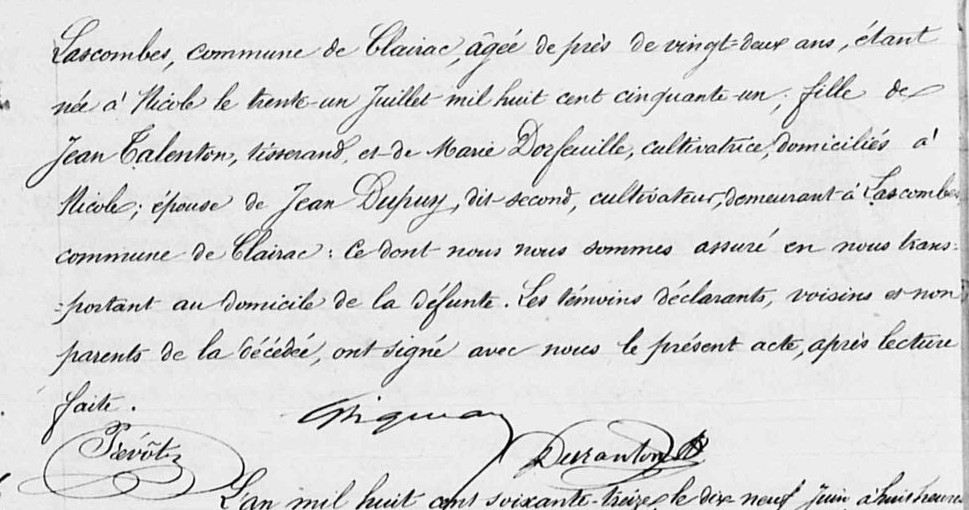 Lascombes, commune de Clairac, âgée de près de vingt-deux ans, étant
née à Nicole le trente-un Juillet mil huit cent cinquante-un; fille de
Jean Talenton, tisserand, et de Marie Dorfeuille, cultivatrice, domiciliés à
Nicole; épouse de Jean Dupuy, dit second, cultivateur, demeurant à Lascombes
commune de Clairac: Ce dont nous nous sommes assuré en nous trans=
=portant au domicile de la défunte. Les témoins déclarants, voisins et non
parents de la décédée, ont signé avec nous le présent acte, après lecture
faite.
Prévôt Duranton
L'an mil huit cent soixante-treize, le dix neuf Juin à huit heures